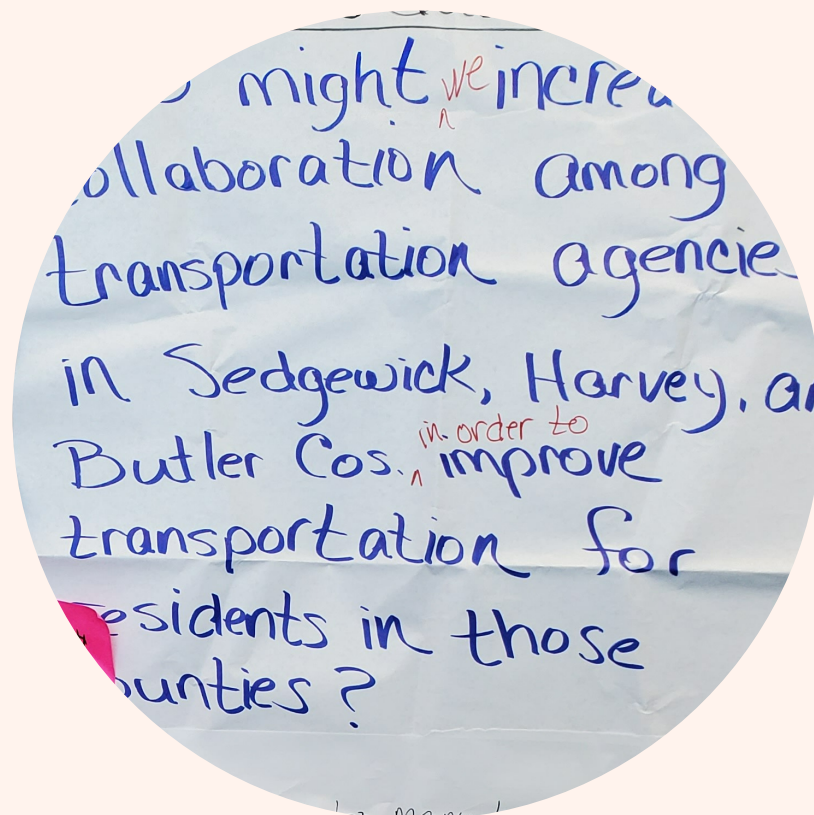 might we increa
ollaboration among
transportation agencie
in Sedgewick, Harvey, an
in order to
Butler Cos. improve
transportation for
residents in those
ounties?